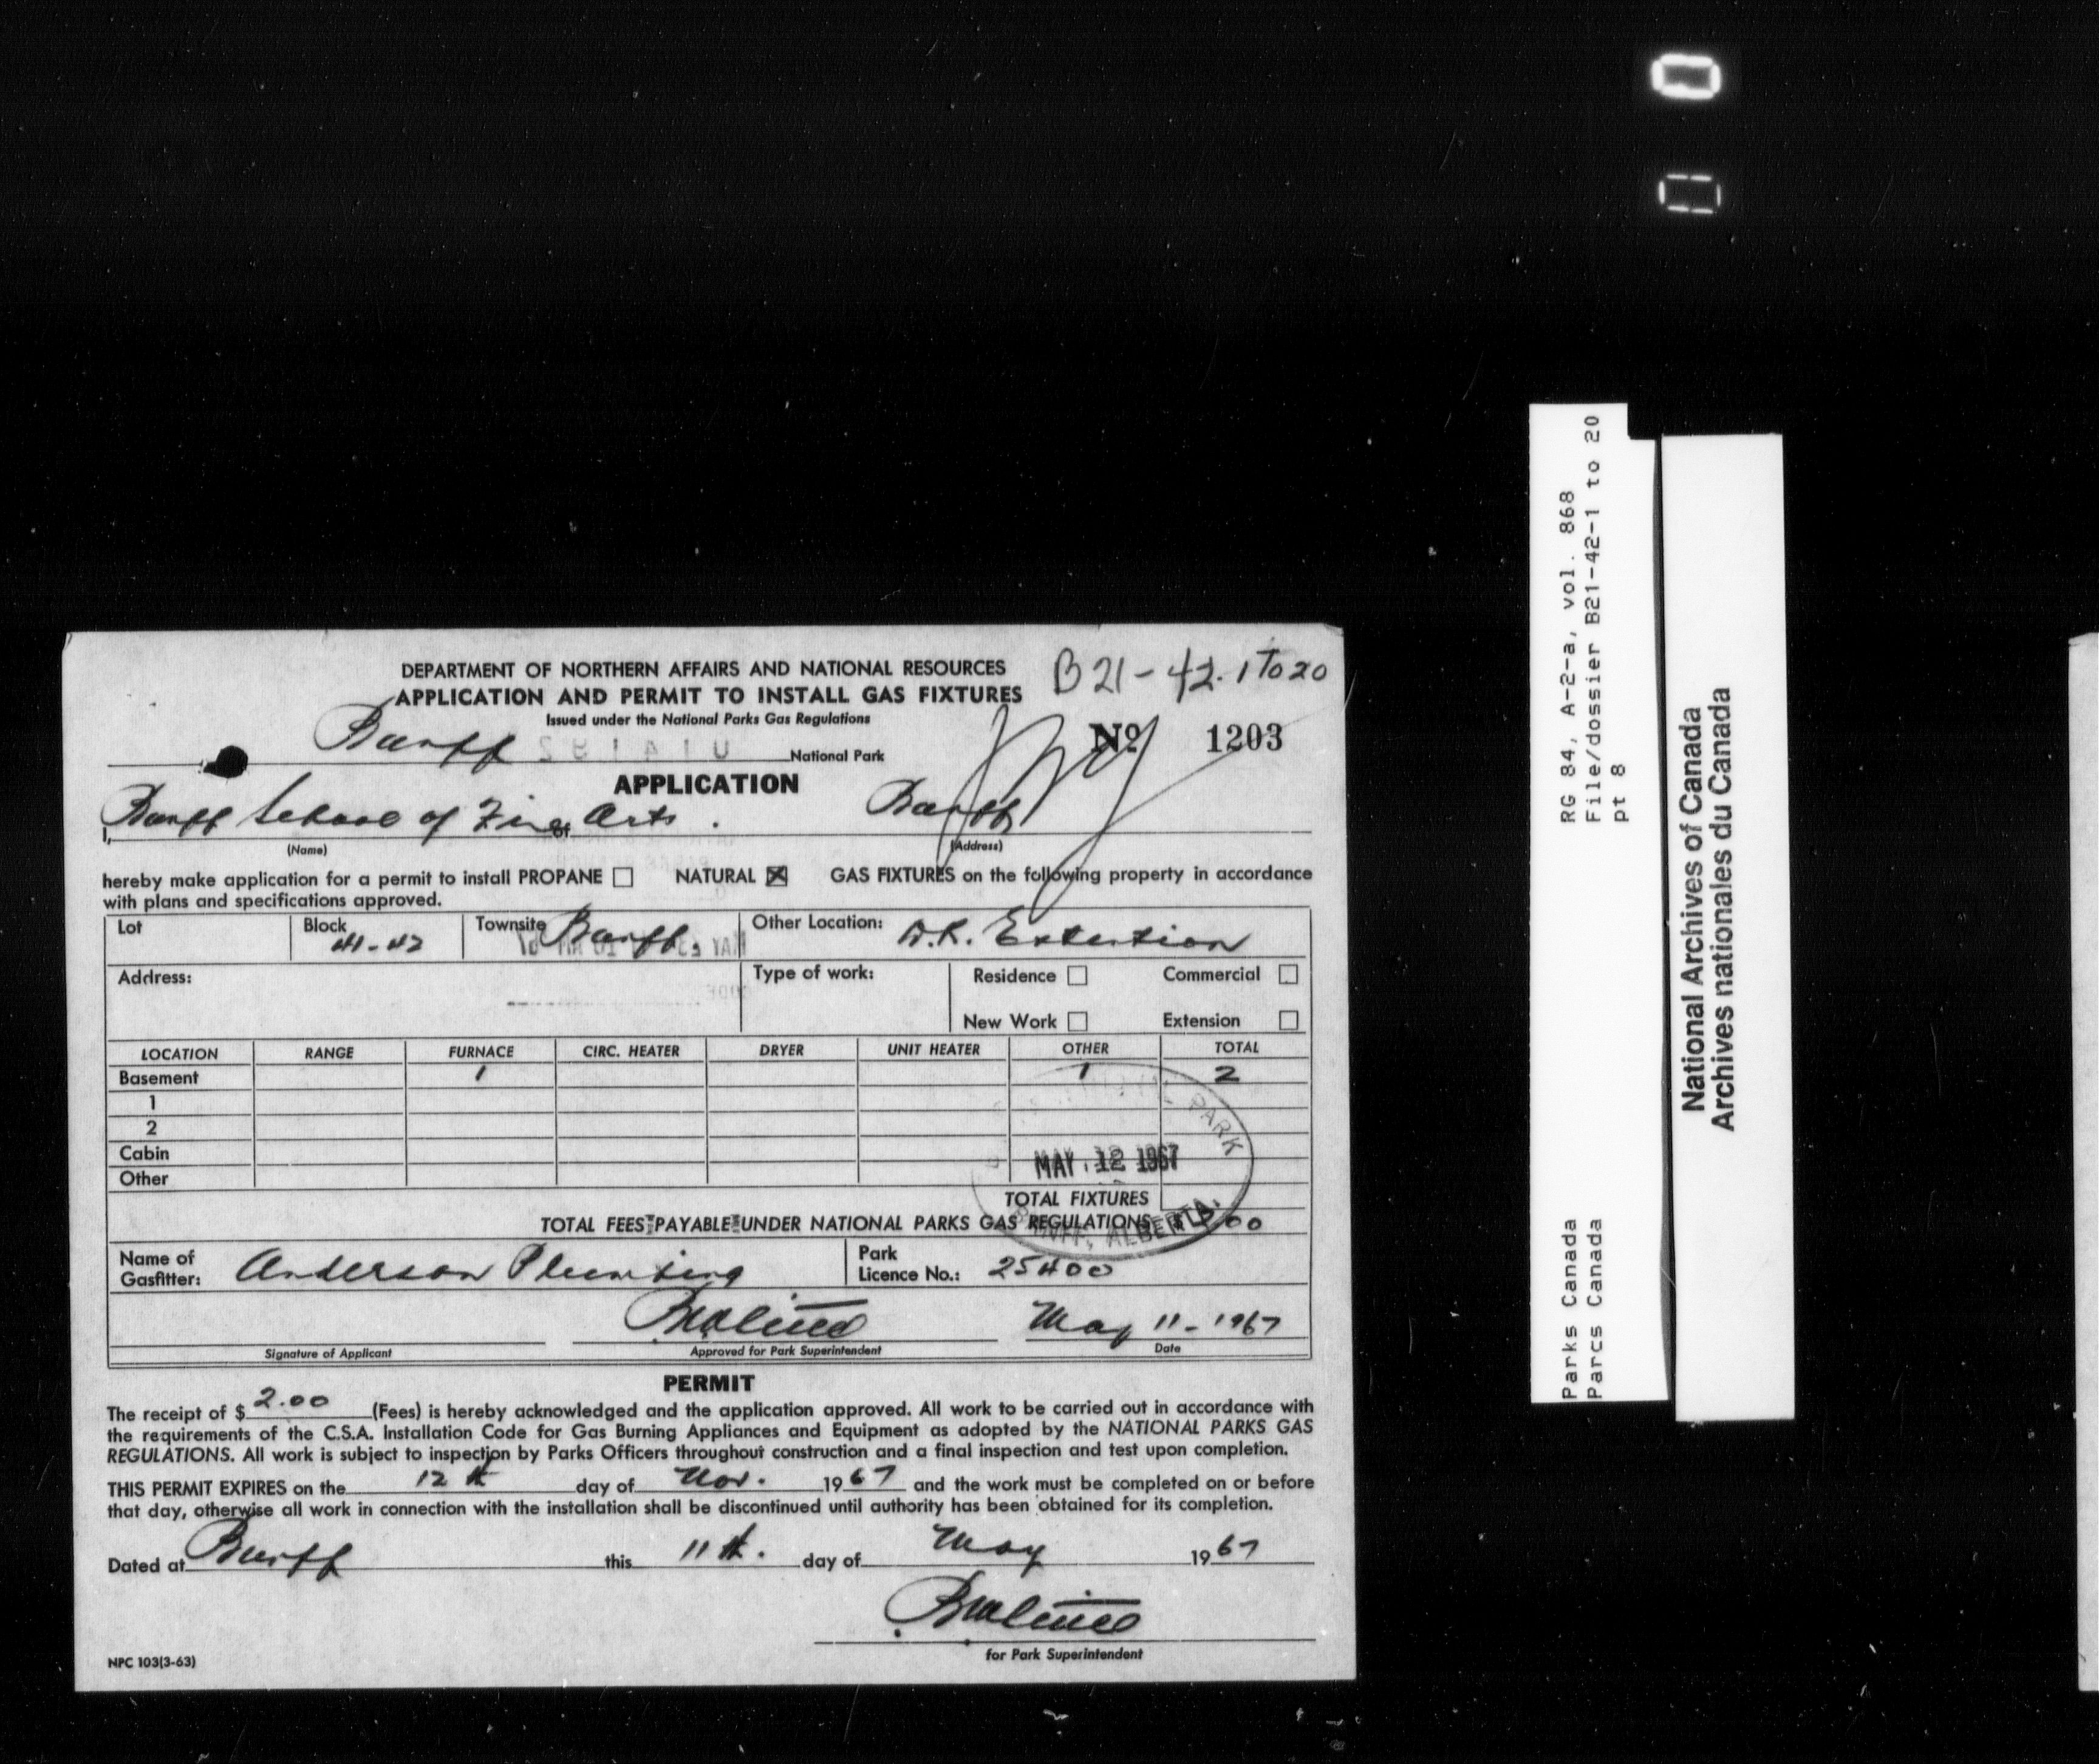 DEPARTMENT OF NORTHERN AFFAIRS AND NATIONAL RESOURCES
B21-42.1 To 20
APPLICATION AND PERMIT TO INSTALL GAS FIXTURES
Issued under the National Parks Gas Regulations
Banff National Park
No 1203
APPLICATION
I, Banff School of Fine Arts. of Banff
(Name) (Address)
hereby make application for a permit to install PROPANE ☐ NATURAL ☒ GAS FIXTURES on the following property in accordance
with plans and specifications approved.
Lot Block 41-42 Townsite Banff. Other Location: D.R. Extention
Address: Type of work: Residence ☐ Commercial ☐
New Work ☐ Extension ☐
LOCATION RANGE FURNACE CIRC. HEATER DRYER UNIT HEATER OTHER TOTAL
Basement 1 1 2
1
2
Cabin
Other
PARK
MAY 12 1967
BANFF, ALBERTA.
TOTAL FIXTURES
TOTAL FEES PAYABLE UNDER NATIONAL PARKS GAS REGULATIONS $ 2.00
Name of Gasfitter: Anderson Plumbing Park Licence No.: 25400
May 11-1967
Signature of Applicant Approved for Park Superintendent Date
PERMIT
The receipt of $ 2.00 (Fees) is hereby acknowledged and the application approved. All work to be carried out in accordance with
the requirements of the C.S.A. Installation Code for Gas Burning Appliances and Equipment as adopted by the NATIONAL PARKS GAS
REGULATIONS. All work is subject to inspection by Parks Officers throughout construction and a final inspection and test upon completion.
THIS PERMIT EXPIRES on the 12th day of Nov. 1967 and the work must be completed on or before
that day, otherwise all work in connection with the installation shall be discontinued until authority has been obtained for its completion.
Dated at Banff this 11th. day of May 1967
for Park Superintendent
NPC 103(3-63)
RG 84, A-2-a, vol. 868
File/dossier B21-42-1 to 20
pt 8
Parks Canada
Parcs Canada
National Archives of Canada
Archives nationales du Canada